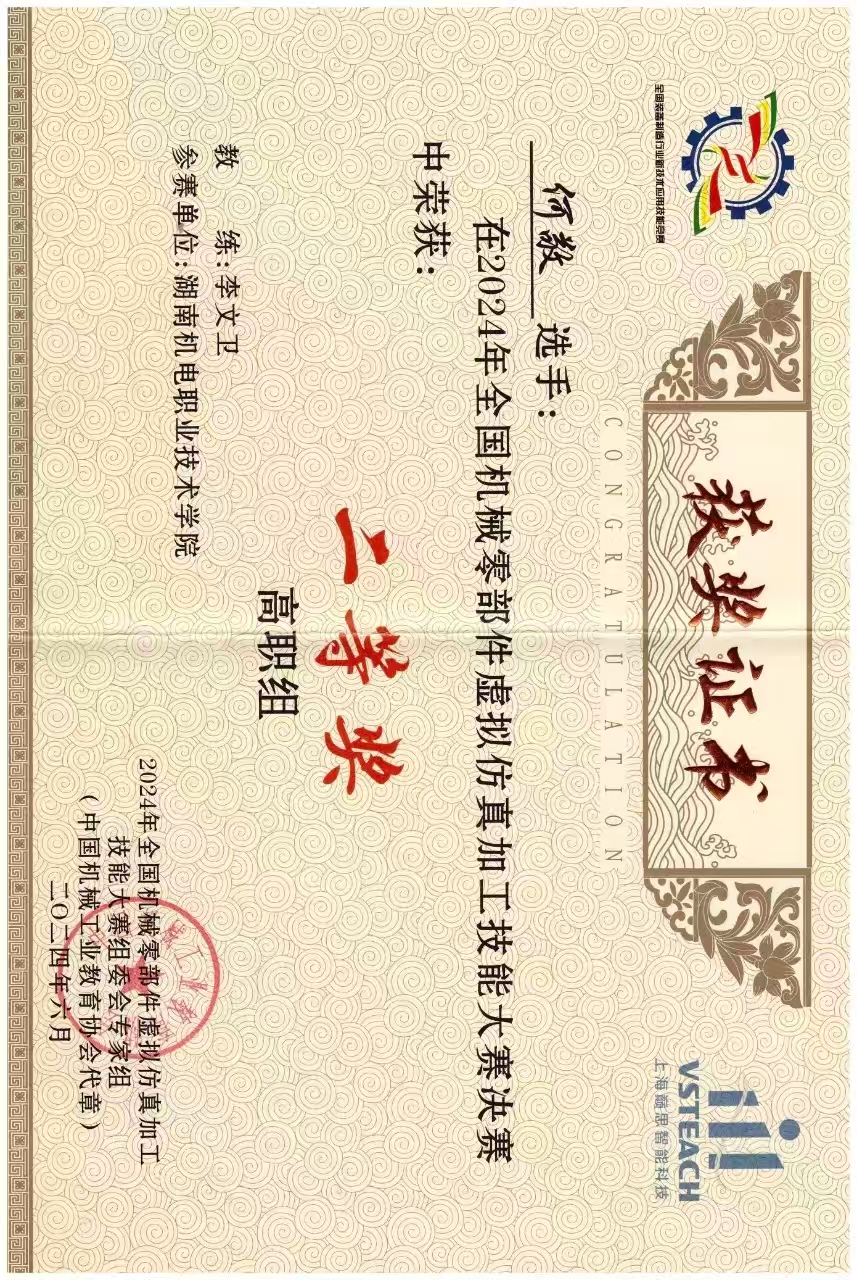 全国装备制造行业新技术应用技能竞赛
获奖证书
VSTEACH
上海巅思智能科技
CONGRATULATION
何敬 选手：
在2024年全国机械零部件虚拟仿真加工技能大赛决赛
中荣获：
二等奖
高职组
教 练：李文卫
参赛单位：湖南机电职业技术学院
2024年全国机械零部件虚拟仿真加工
技能大赛组委会专家组
（中国机械工业教育协会代章）
二〇二四年六月